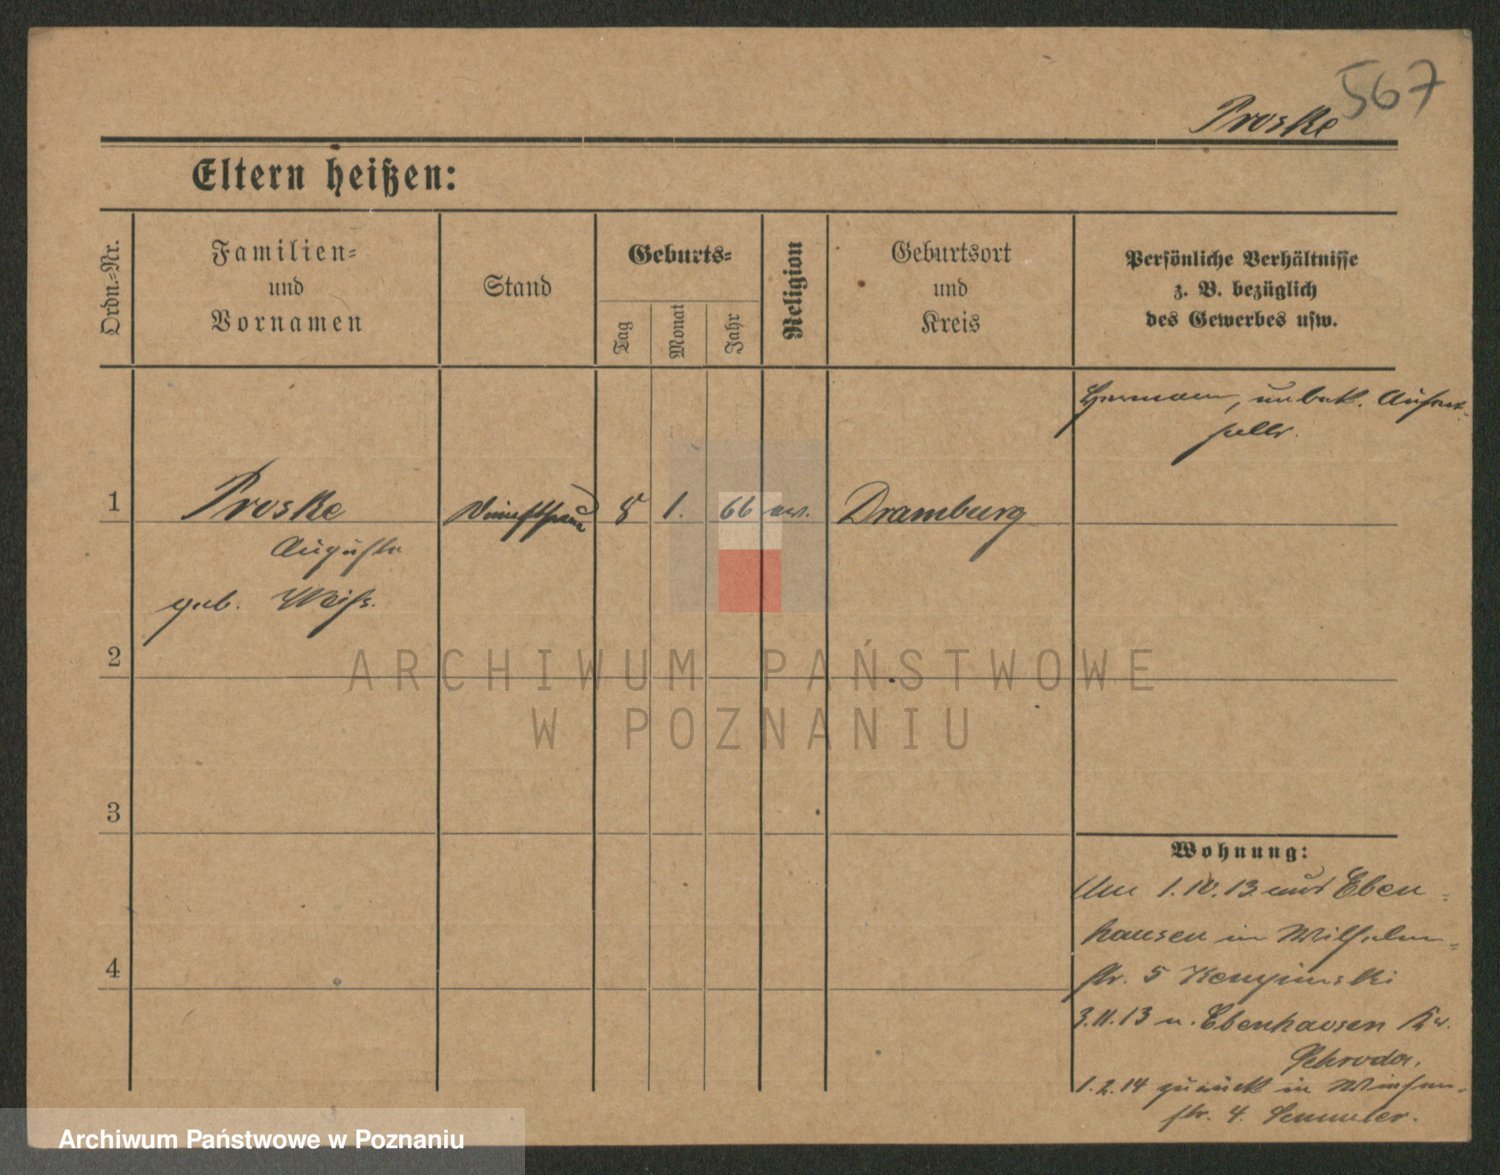 567
Proske
Eltern heißen:
Ordn.-Nr.
Familien-
und
Vornamen
Stand
Geburts-
Tag
Monat
Jahr
Religion
Geburtsort
und
Kreis
Persönliche Verhältnisse
z. B. bezüglich
des Gewerbes usw.
Hermann, unbek. Aufent-
halts.
1
Proske
8
1.
66
ev.
Dramburg
Auguste
geb. Weiß.
2
ARCHIWUM PAŃSTWOWE
W POZNANIU
3
Wohnung:
Am 1.10.13 aus Eben-
hausen in Wilhelm-
str. 5 Kempinski
4
3.11.13 n. Ebenhausen Kr.
Schroda.
1.2.14 zurück in
str. 4.
Archiwum Państwowe w Poznaniu